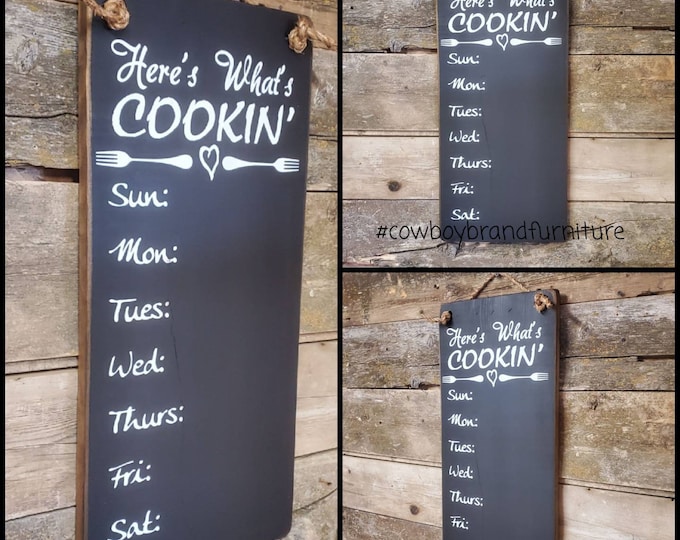 Here's What's
COOKIN'
Sun:
Mon:
Tues:
Wed:
Thurs:
Fri:
Sat:
Here's What's
COOKIN'
Sun:
Mon:
Tues:
Wed:
Thurs:
Fri:
Sat:
#cowboybrandfurniture
Here's What's
COOKIN'
Sun:
Mon:
Tues:
Wed:
Thurs:
Fri: